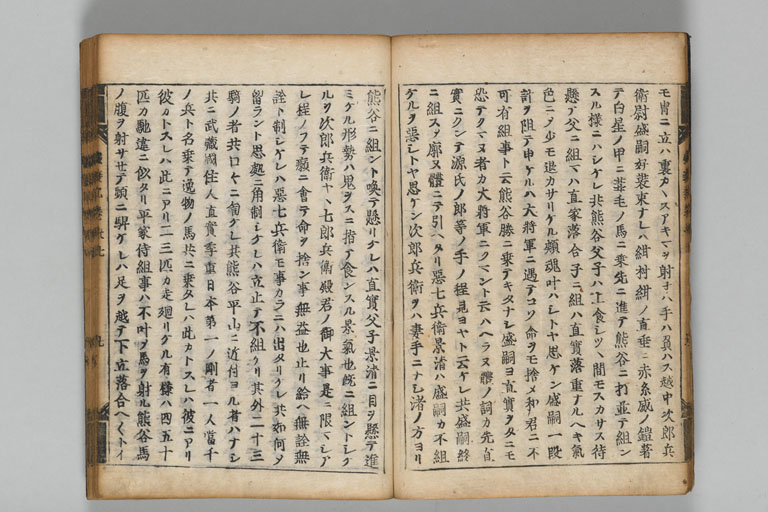 モ冑ニ立ハ裏カヽスアキマヲ射ナハ手ハ負ハス越中次郎兵
衛尉盛嗣好裝束ナレハ紺村紺ノ直垂ニ赤糸威ノ鎧著
テ白星ノ甲ニ葦毛ノ馬ニ乗先ニ進テ熊谷ニ打並テ組ン
スル様ニハシケレ共熊谷父子ハ主食シツヽ間モスカサス待
懸テ父ニ組マハ直家落合子ニ組ハ直實落重ナルヘキ氣
色ニテ少モ退カサリケル頰魂叶ハシトヤ思ケン盛嗣一段
計ヲ阻テ申ケルハ大將軍ニ遇テコソ命ヲモ捨メ和君ニ不
可有組事ト云熊谷勝ニ乗テキタナシ盛嗣ヨ直實ヲタニモ
恐テクマヌ者カ大將軍ニクマント云ハヘラヌ體ノ詞カ先直
實ニクンテ源氏ノ郎等ノ手ノ程見ヨヤト云ケレ共盛嗣終
ニ組スヲ廓ヌ體ニテ引ヘタリ惡七兵衛景清ハ盛嗣カ不組
ケルヲ惡シトヤ思ケン次郎兵衛ヲハ妻手ニナシ渚ノ方ヨリ
熊谷ニ組ント喚テ懸リケレハ直實父子景清ニ目ヲ懸テ進
ミケル形勢ハ鬼ヲスニ指テ食ンスル景氣也既ニ組ントシケ
ルヲ次郎兵衛ヤヽ七郎兵衛殿君ノ御大事是ニ限マシア
レ程ノフテ類ニ會テ命ヲ捨ン事無益也止リ給ヘ無詮無
詮ト制シケレハ惡七兵衛モ事カラニハ出タリケレ共如何ヲ
留ラント思處ニ角制シケレハ立止テ不組ケリ其外二十三
騎ノ者共口ヤニ匍ケレ共熊谷平山ニ近付ヨル者ハナシ
共ニ武藏國住人直實季重日本第一ノ剛者一人當千
ノ兵ト名乗テ逸物ノ馬共ニ乗タレハ此カトスレハ彼ニアリ
彼カトスレハ此ニアリ二三匹カ走廻リケル有様ハ四五十
匹カ馳違ニ似タリ平家侍組事ハ不叶ヲ馬ヲ射ル熊谷馬
ノ腹ヲ射サセテ頻ニ騂ケレハ足ヲ越テ下立落合ヘ〱トイ